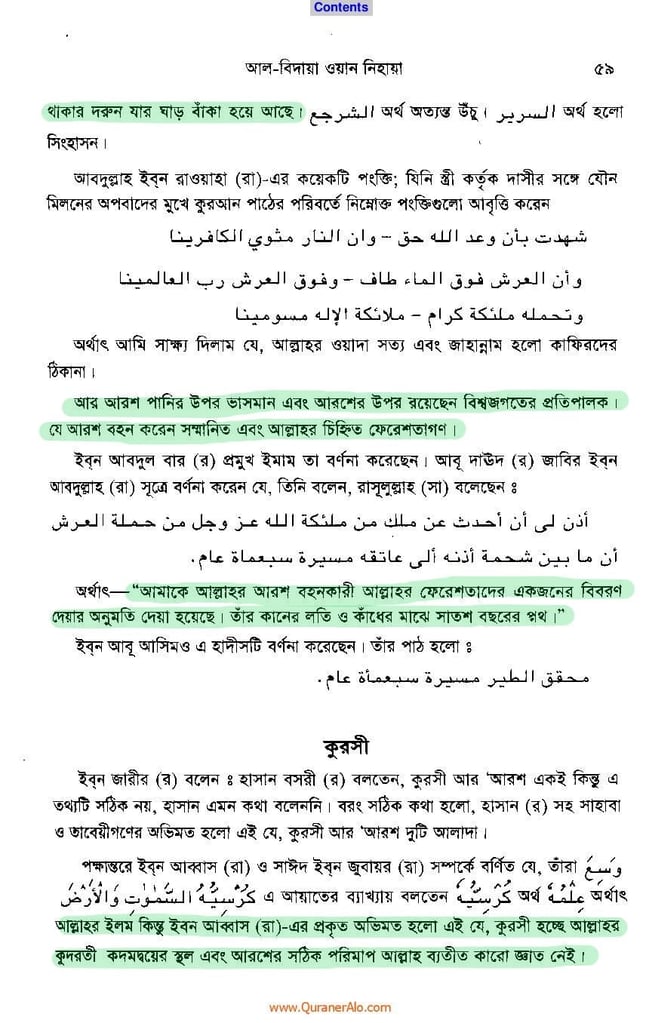 Contents
আল-বিদায়া ওয়ান নিহায়া ৫৯
থাকার দরুন যার ঘাড় বাঁকা হয়ে আছে। الشرجع অর্থ অত্যন্ত উঁচু। السرير অর্থ হলো
সিংহাসন।
আবদুল্লাহ ইব্‌ন রাওয়াহা (রা)-এর কয়েকটি পংক্তি; যিনি স্ত্রী কর্তৃক দাসীর সঙ্গে যৌন
মিলনের অপবাদের মুখে কুরআন পাঠের পরিবর্তে নিম্নোক্ত পংক্তিগুলো আবৃত্তি করেন
شهدت بأن وعد الله حق – وان النار مثوي الكافرينا
وأن العرش فوق الماء طاف – وفوق العرش رب العالمينا
وتحمله ملئكة كرام – ملائكة الإله مسومينا
অর্থাৎ আমি সাক্ষ্য দিলাম যে, আল্লাহর ওয়াদা সত্য এবং জাহান্নাম হলো কাফিরদের
ঠিকানা।
আর আরশ পানির উপর ভাসমান এবং আরশের উপর রয়েছেন বিশ্বজগতের প্রতিপালক।
যে আরশ বহন করেন সম্মানিত এবং আল্লাহর চিহ্নিত ফেরেশতাগণ।
ইব্‌ন আবদুল বার (র) প্রমুখ ইমাম তা বর্ণনা করেছেন। আবূ দাঊদ (র) জাবির ইব্‌ন
আবদুল্লাহ (রা) সূত্রে বর্ণনা করেন যে, তিনি বলেন, রাসূলুল্লাহ (সা) বলেছেন ঃ
أذن لى أن أحدث عن ملك من ملئكة الله عز وجل من حملة العرش
أن ما بين شحمة أذنه ألى عاتقه مسيرة سبعمأة عام.
অর্থাৎ—“আমাকে আল্লাহর আরশ বহনকারী আল্লাহর ফেরেশতাদের একজনের বিবরণ
দেয়ার অনুমতি দেয়া হয়েছে। তাঁর কানের লতি ও কাঁধের মাঝে সাতশ বছরের পথ।”
ইব্‌ন আবূ আসিমও এ হাদীসটি বর্ণনা করেছেন। তাঁর পাঠ হলো ঃ
محقق الطير مسيرة سبعمأة عام.
কুরসী
ইব্‌ন জারীর (র) বলেন ঃ হাসান বসরী (র) বলতেন, কুরসী আর ‘আরশ একই কিন্তু এ
তথ্যটি সঠিক নয়, হাসান এমন কথা বলেননি। বরং সঠিক কথা হলো, হাসান (র) সহ সাহাবা
ও তাবেয়ীগণের অভিমত হলো এই যে, কুরসী আর ‘আরশ দুটি আলাদা।
পক্ষান্তরে ইব্‌ন আব্বাস (রা) ও সাঈদ ইব্‌ন জুবায়র (রা) সম্পর্কে বর্ণিত যে, তাঁরা وَسِعَ
كُرْسِيُّهُ السَّمٰوٰتِ وَالْأَرْضَ এ আয়াতের ব্যাখ্যায় বলতেন كُرْسِيُّهُ অর্থ عِلْمُهُ অর্থাৎ
আল্লাহর ইলম কিন্তু ইবন আব্বাস (রা)-এর প্রকৃত অভিমত হলো এই যে, কুরসী হচ্ছে আল্লাহর
কুদরতী কদমদ্বয়ের স্থল এবং আরশের সঠিক পরিমাপ আল্লাহ ব্যতীত কারো জ্ঞাত নেই।
www.QuranerAlo.com